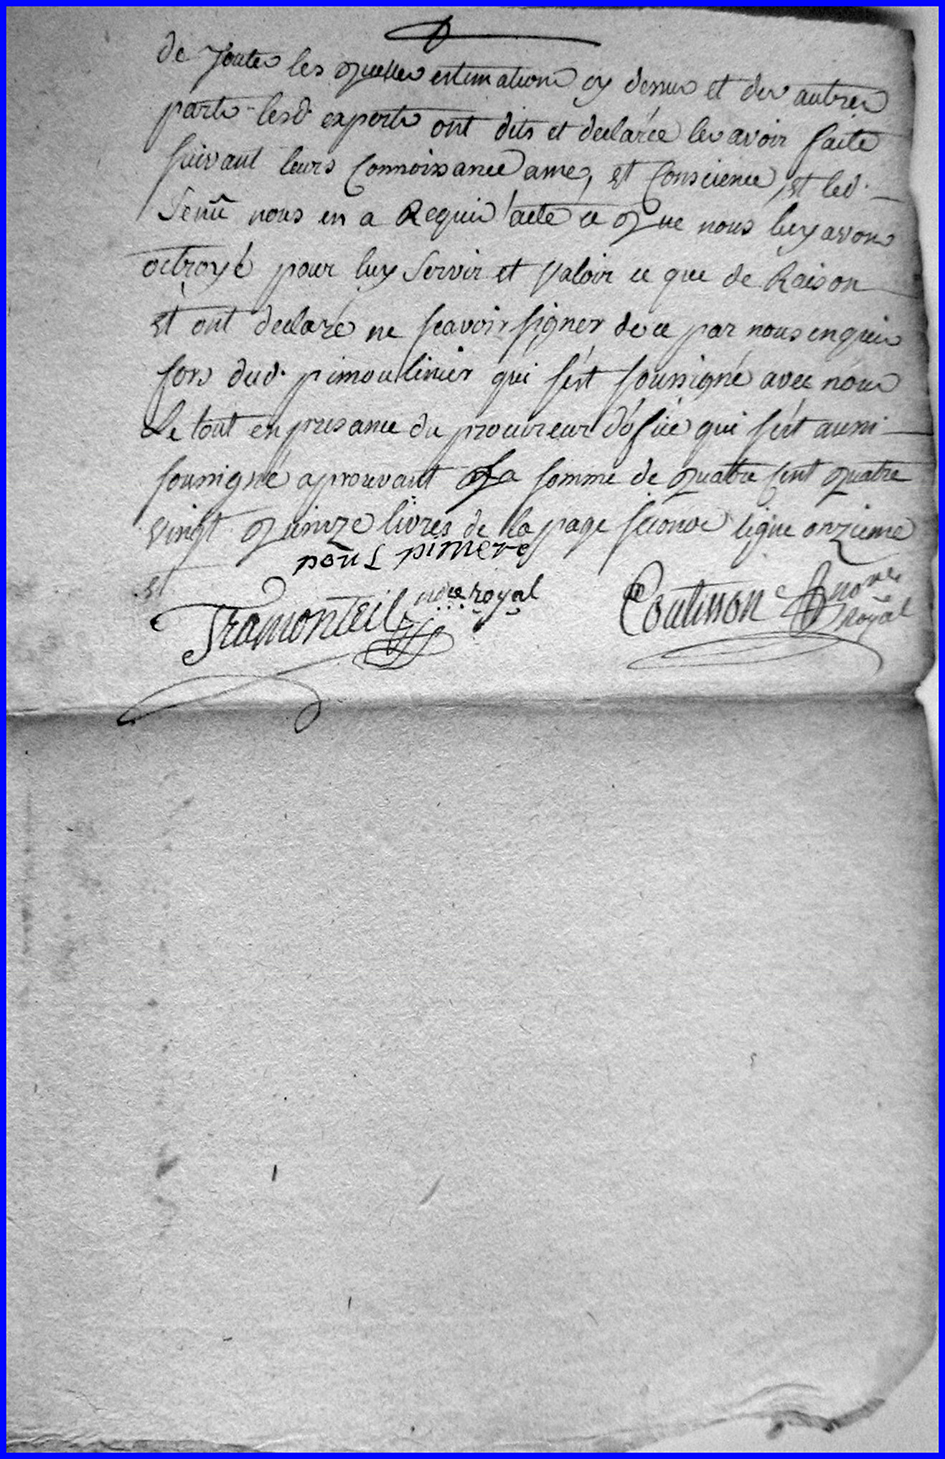 de Toutes les quelles estimations cy dessus et des autres
parts lesd experts ont dits et declarée les avoir faite
suivant leurs Connoissance ame, et Conscience, et led.
Senû nous en a Requis acte ce que nous luy avons
octroyé pour luy Servir et valoir ce que de Raison
et ont declare ne scavoir signer de ce par nous enquis
fors dud. pimoulinier qui s'est soussigné avec nous
Le tout en presance du procureur d'ofice qui s'est aussi
soussigné aprouvant la somme de quatre cent quatre
vingt quinze livres de la page seconde ligne onzieme
et
Tramonteil nore royal
Coutisson nore royal